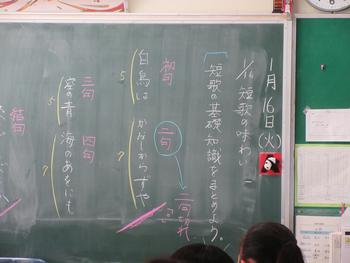 1月16日(火)
1/16 短歌の味わい
「短歌の基礎知識をまとめよう。」
初句
二句
二句切れ
白鳥は かなしからずや
5 7
三句 四句
空の青 海のあをにも
5 7
結句